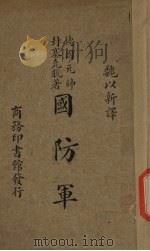 魏以新譯
國防軍
德國元帥
封塞克脫著
商務印書館發行